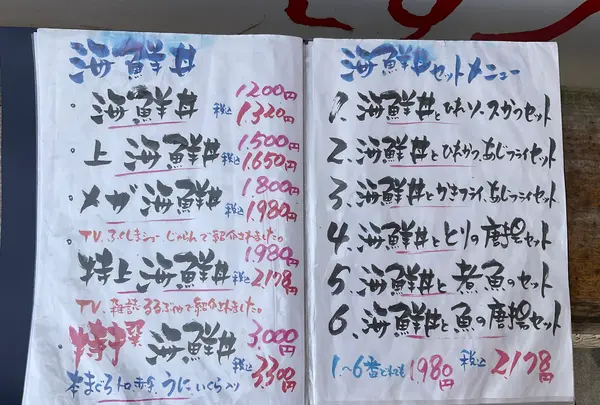 海鮮丼
・海鮮丼 1200円
税込 1320円
・上海鮮丼 1,500円
税込 1,650円
・メガ海鮮丼 1800円
税込 1,980円
・TV. ふくしまショー じゃらんで紹介されました。
特上海鮮丼 1,980円
税込 2,178円
TV. 雑誌るるぶ で紹介されました。
特選海鮮丼 3,000円
税込 3,300円
本まぐろトロ赤身、うに、いくら入り
海鮮丼セットメニュー
1、海鮮丼とひれソースかつセット
2、海鮮丼とひれかつ、あじフライセット
3、海鮮丼とかきフライ、あじフライセット
4、海鮮丼ととりの唐揚セット
5、海鮮丼と煮魚のセット
6、海鮮丼と魚の唐揚セット
1.〜6番どれでも 1,980円 税込 2,178円